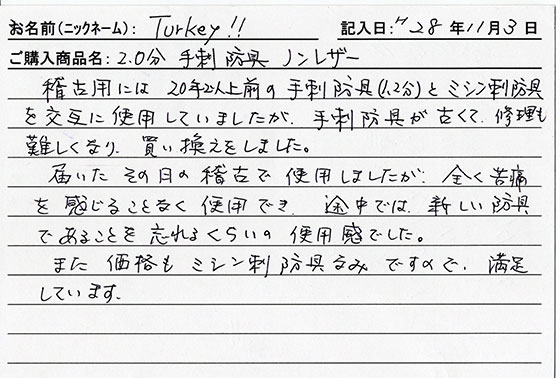 お名前(ニックネーム): Turkey!! 記入日: H28年11月3日
ご購入商品名: 2.0分 手刺防具 ノンレザー
稽古用には 20年以上前の手刺防具(1.2分)とミシン刺防具
を交互に使用していましたが、手刺防具が古くて、修理も
難しくなり、買い換えをしました。
届いたその日の稽古で使用しましたが、全く苦痛
を感じることなく使用でき、途中では、新しい防具
であることを忘れるくらいの使用感でした。
また価格もミシン刺防具なみですので、満足
しています。